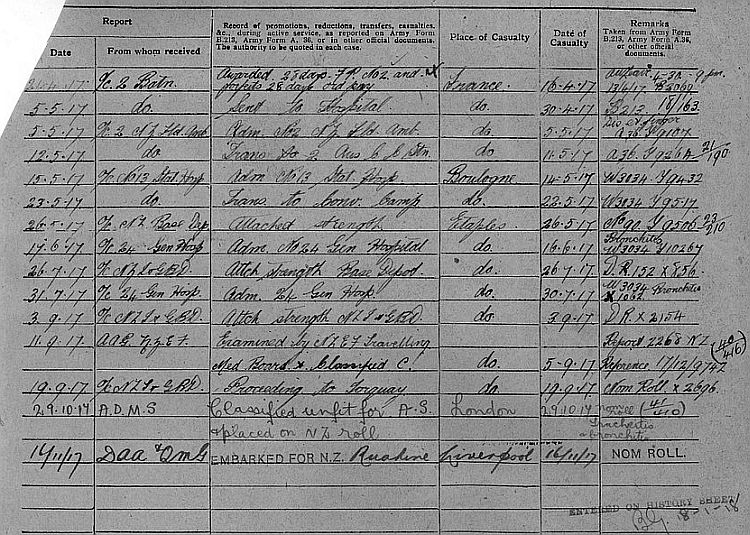 Report
Record of promotions, reductions, transfers, casualties,
&c., during active service, as reported on Army Form
B.213, Army Form A. 36, or in other official documents.
The authority to be quoted in each case.
Place of Casualty
Date of
Casualty
Remarks
Taken from Army Form
B.213, Army Form A.36,
or other official
documents.
Date From whom received
4.17 2 Batn. Awarded 28 days F.P. No 2 and
forfeits 28 days pay France 16-4-17
5-5-17 do. Sent to Hospital do. 30-4-17 B213
5-5-17 2 NZ Fld. Amb. Adm. No2 NZ Fld. Amb. do. 5-5-17 A36.
12-5-17 do Trans to 2 Aus C Stn. do. 11-5-17 A36.
15-5-17 No 13 Stat Hosp Adm No 13 Stat Hosp Boulogne 14-5-17 W3034 9432
23-5-17 do. Trans to Conv. Camp do. 22-5-17 W3034 9517
26-5-17 NZ Base Dep. Attached strength Etaples 26-5-17
17-6-17 24 Gen Hosp Adm. No 24 Gen Hospital do. 16-6-17 Bronchitis W3034
26-7-17 NZI&GBD. Attch strength Base Depot. do. 26-7-17 D.R. 152
31-7-17 24 Gen Hosp. Adm. 24 Gen Hosp. do. 30-7-17 W3034 Bronchitis
3-9-17 NZI&GBD Attch strength NZI&GBD do. 3-9-17 DR x 2154
11-9-17 A.A.G. NZEF. Examined by NZEF Travelling Report 2268 NZ
Med Board & Classified C. do. 5-9-17 Reference 17/12/9747
19-9-17 NZI&GBD. Proceeding to Torquay do 19-9-17 Nom Roll x 2696.
29.10.17 A.D.M.S Classified unfit for A.S. London 29.10.17 Roll (41/410)
& placed on NZ roll. Tracheitis & bronchitis
16/11/17 DAA & QMG EMBARKED FOR N.Z. Ruahine Liverpool 16/11/17 NOM ROLL.
ENTERED ON HISTORY SHEET
18-1-18